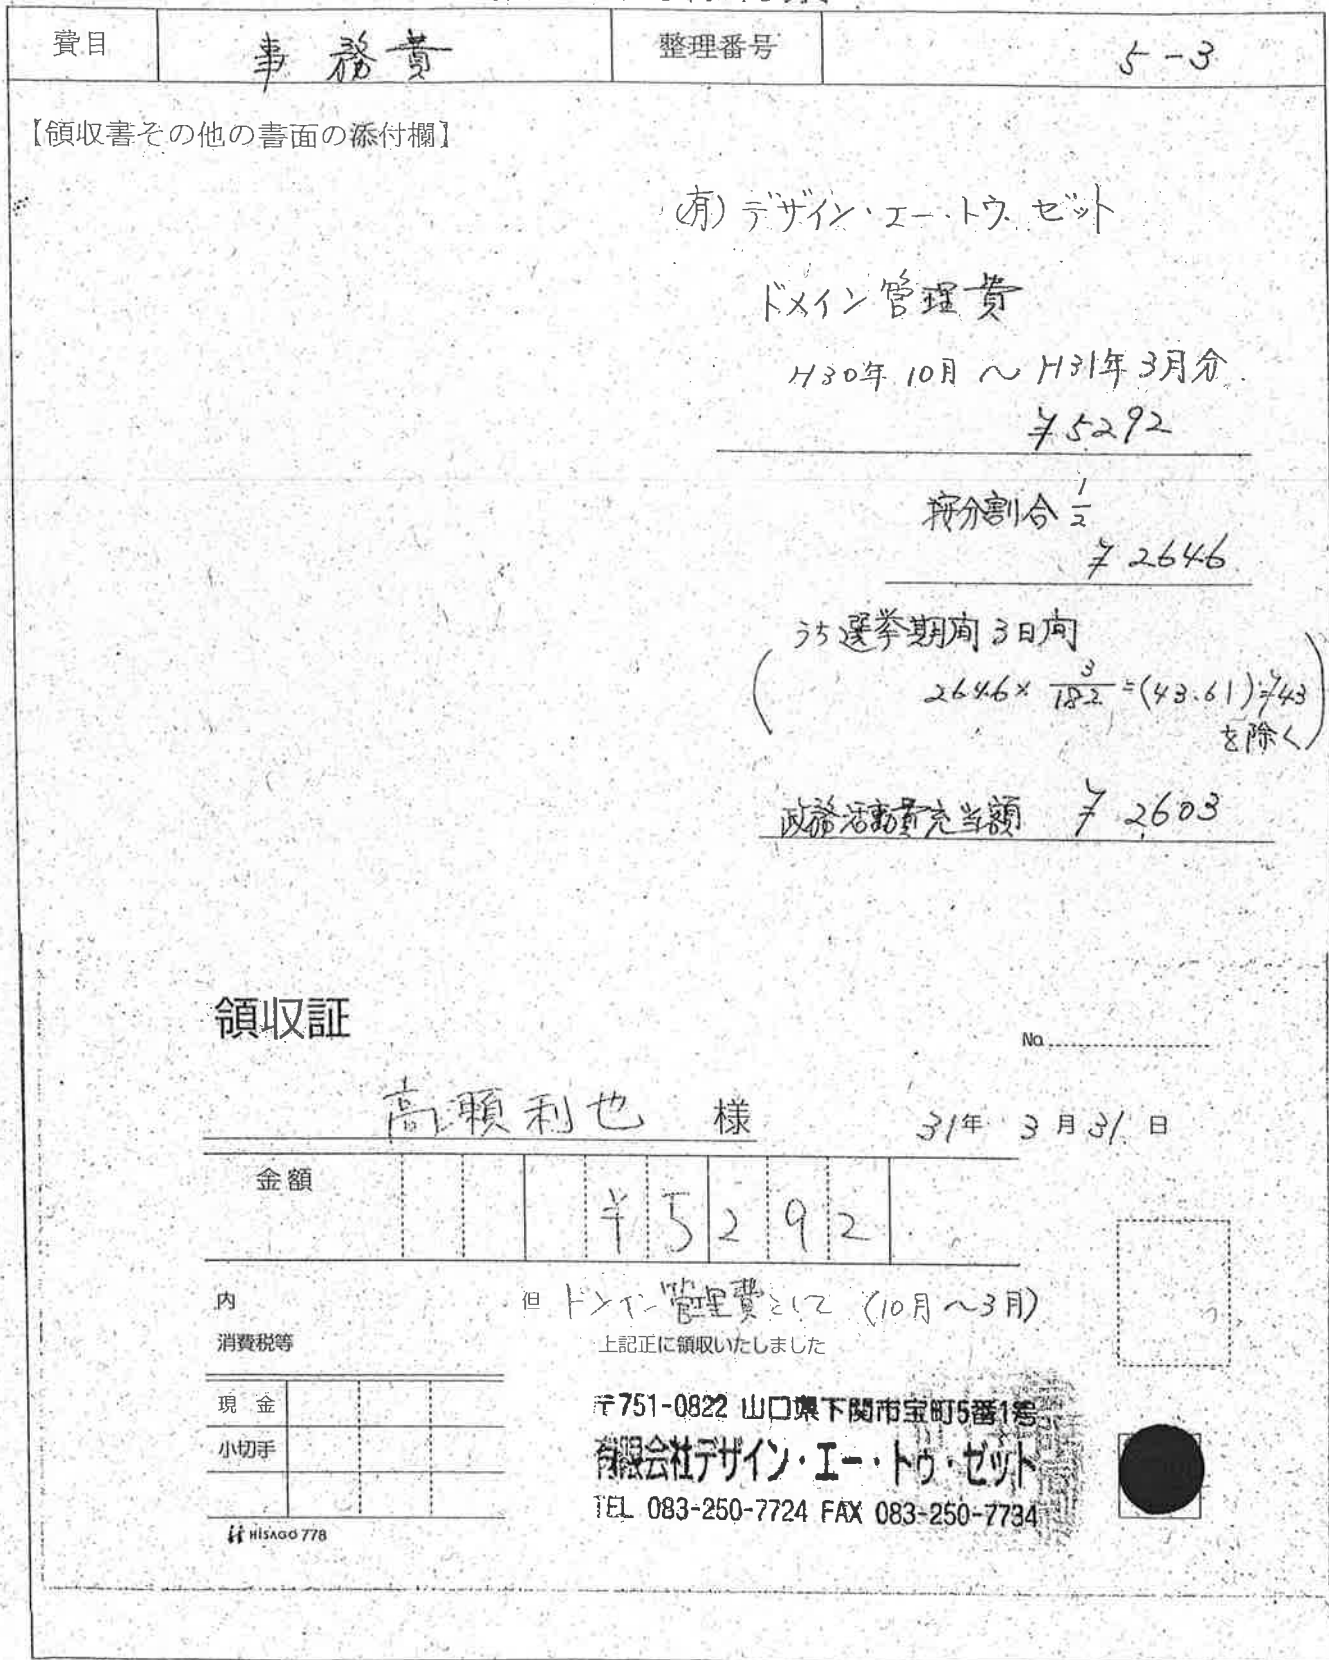 費目 事務費 整理番号 5-3
【領収書その他の書面の添付欄】
(有)デザイン・エー・トウ・ゼット
ドメイン管理費
H30年10月〜H31年3月分
¥5292
按分割合 1/2
¥2646
うち選挙期間3日間
2646× 3/182 =(43.61)≒¥43
を除く
政務活動費充当額 ¥2603
領収証
No.
高瀬利也 様 31年 3月31日
金額 ¥5292
内 但 ドメイン管理費として (10月〜3月)
消費税等 上記正に領収いたしました
現金
〒751-0822 山口県下関市宝町5番1号
小切手
有限会社デザイン・エー・トゥ・ゼット
TEL 083-250-7724 FAX 083-250-7734
HISAGO 778